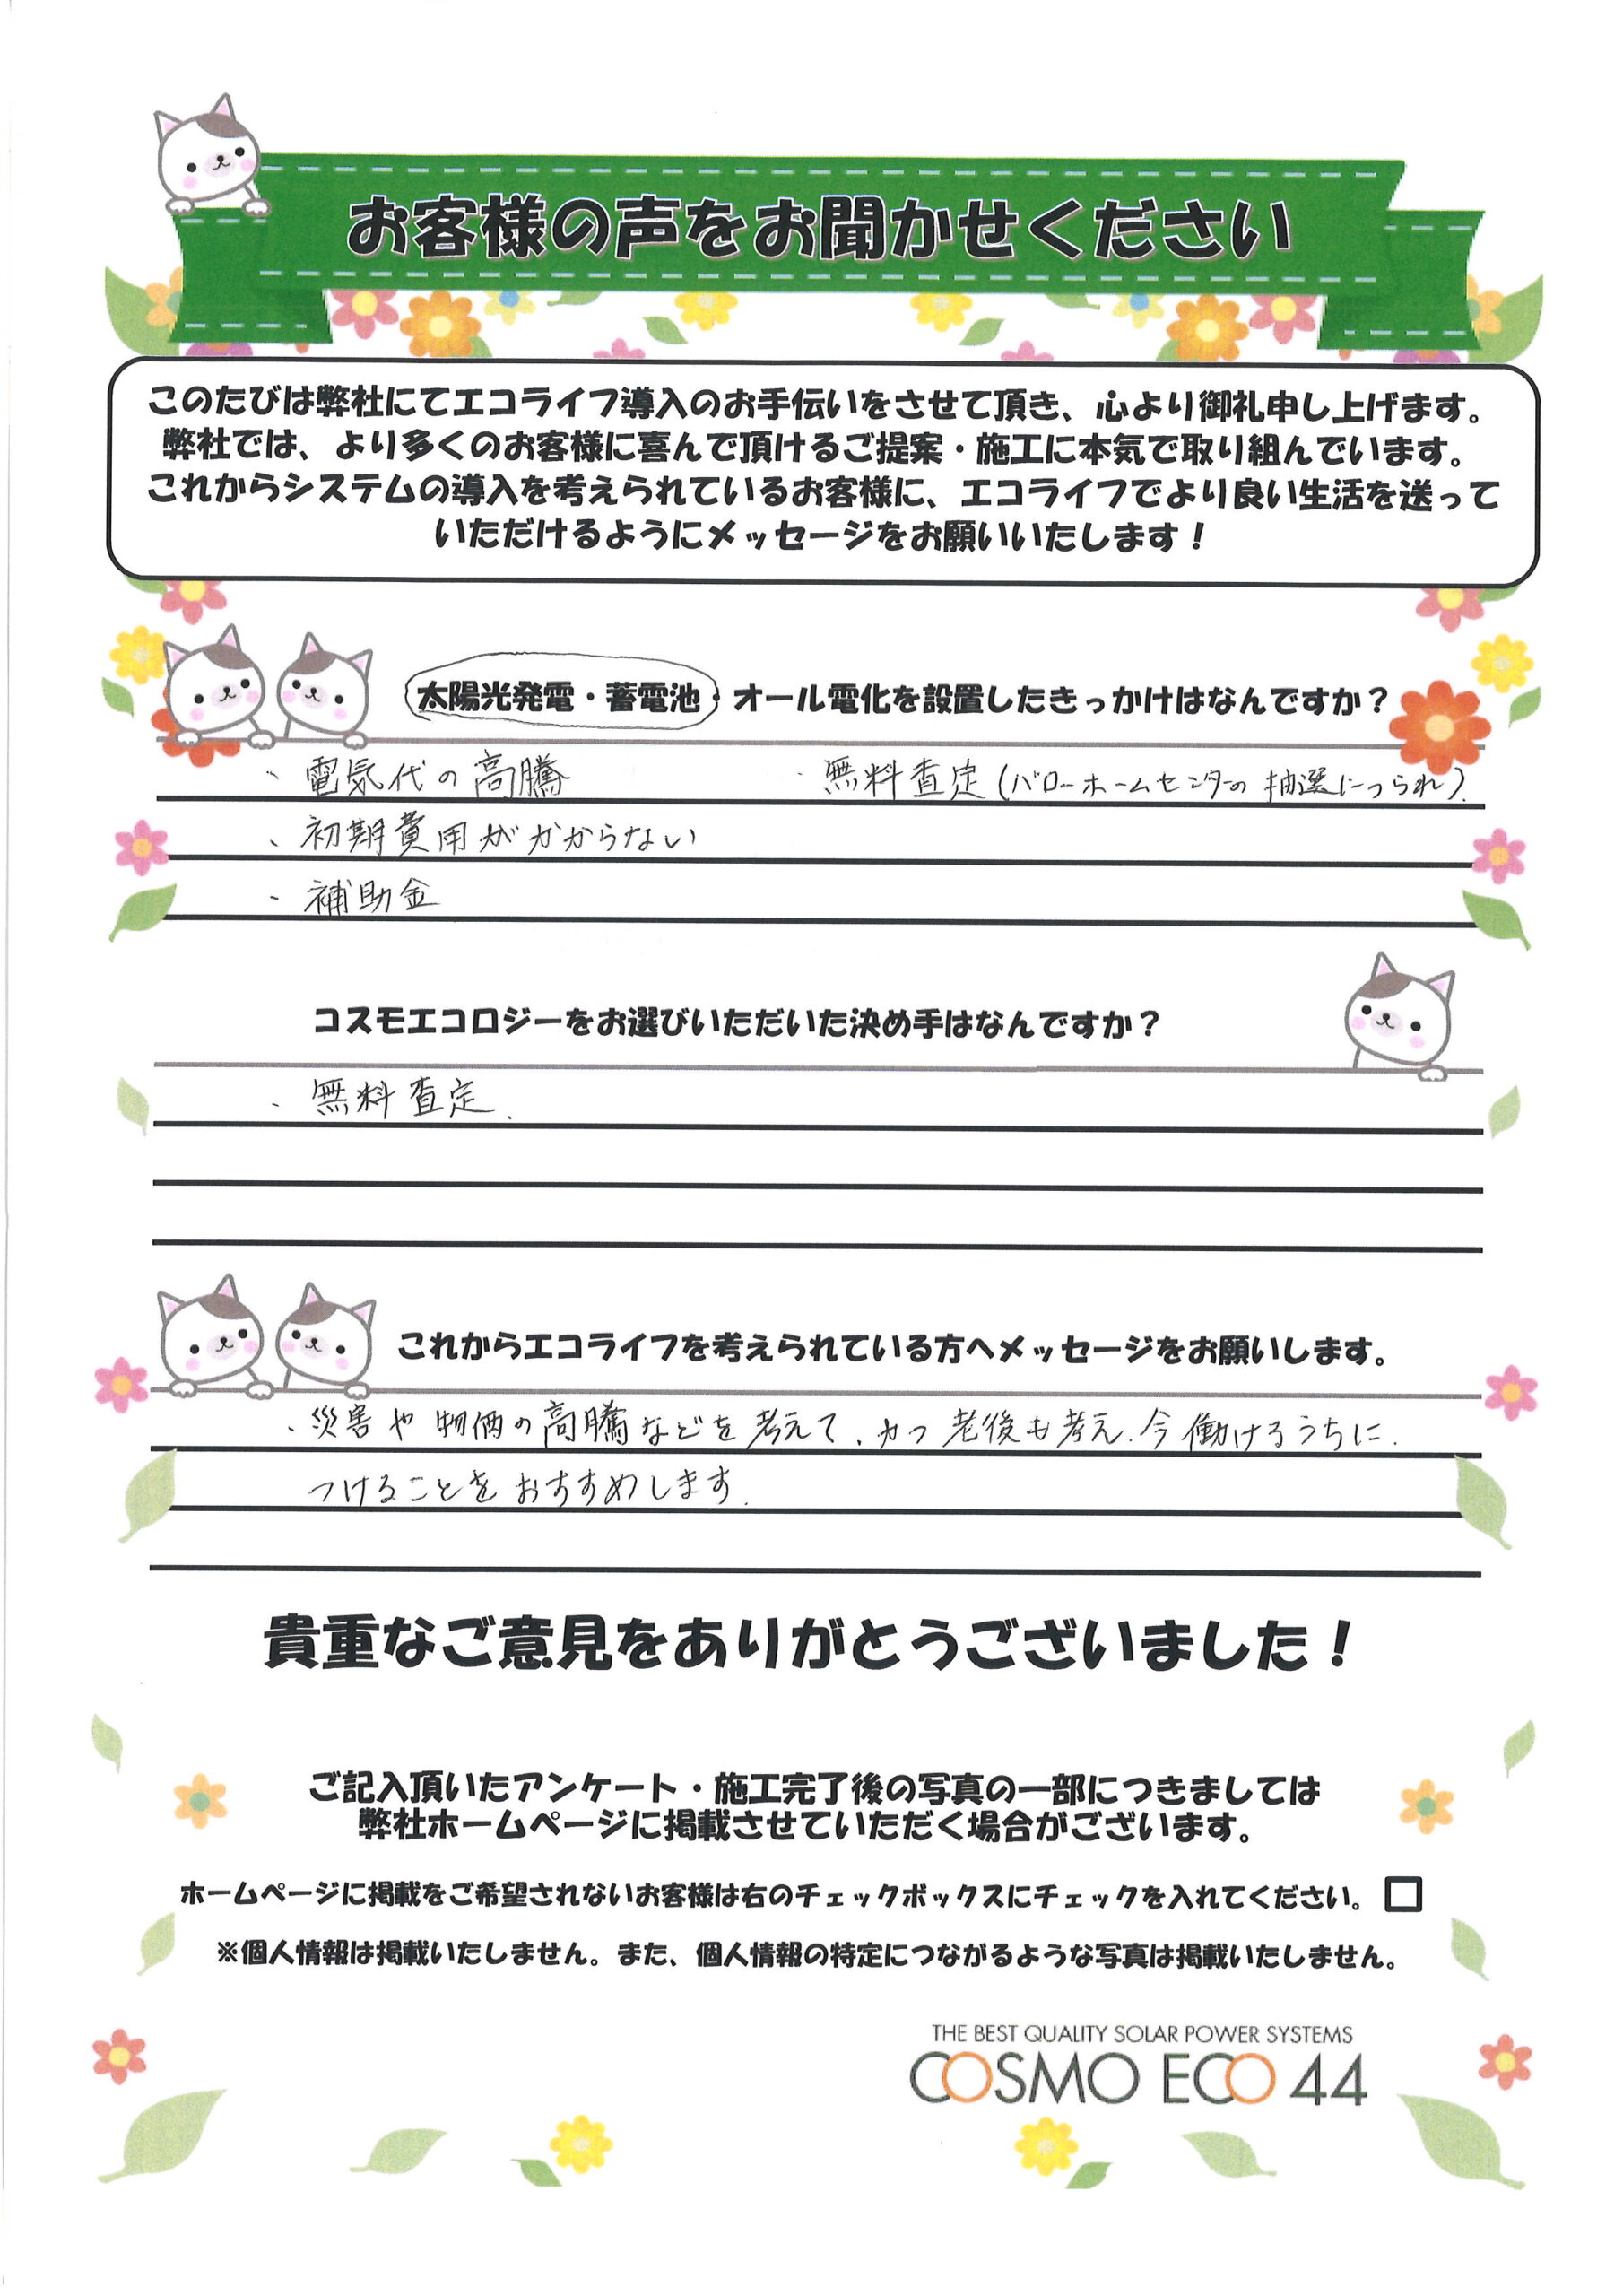 お客様の声をお聞かせください
このたびは弊社にてエコライフ導入のお手伝いをさせて頂き、心より御礼申し上げます。
弊社では、より多くのお客様に喜んで頂けるご提案・施工に本気で取り組んでいます。
これからシステムの導入を考えられているお客様に、エコライフでより良い生活を送って
いただけるようにメッセージをお願いいたします！
太陽光発電・蓄電池・オール電化を設置したきっかけはなんですか？
・電気代の高騰 ・無料査定（バローホームセンターの抽選につられ）.
・初期費用がかからない
・補助金
コスモエコロジーをお選びいただいた決め手はなんですか？
・無料査定.
これからエコライフを考えられている方へメッセージをお願いします。
・災害や物価の高騰などを考えて、かつ老後も考え、今働けるうちに、
つけることをおすすめします.
貴重なご意見をありがとうございました！
ご記入頂いたアンケート・施工完了後の写真の一部につきましては
弊社ホームページに掲載させていただく場合がございます。
ホームページに掲載をご希望されないお客様は右のチェックボックスにチェックを入れてください。
※個人情報は掲載いたしません。また、個人情報の特定につながるような写真は掲載いたしません。
THE BEST QUALITY SOLAR POWER SYSTEMS
COSMO ECO 44